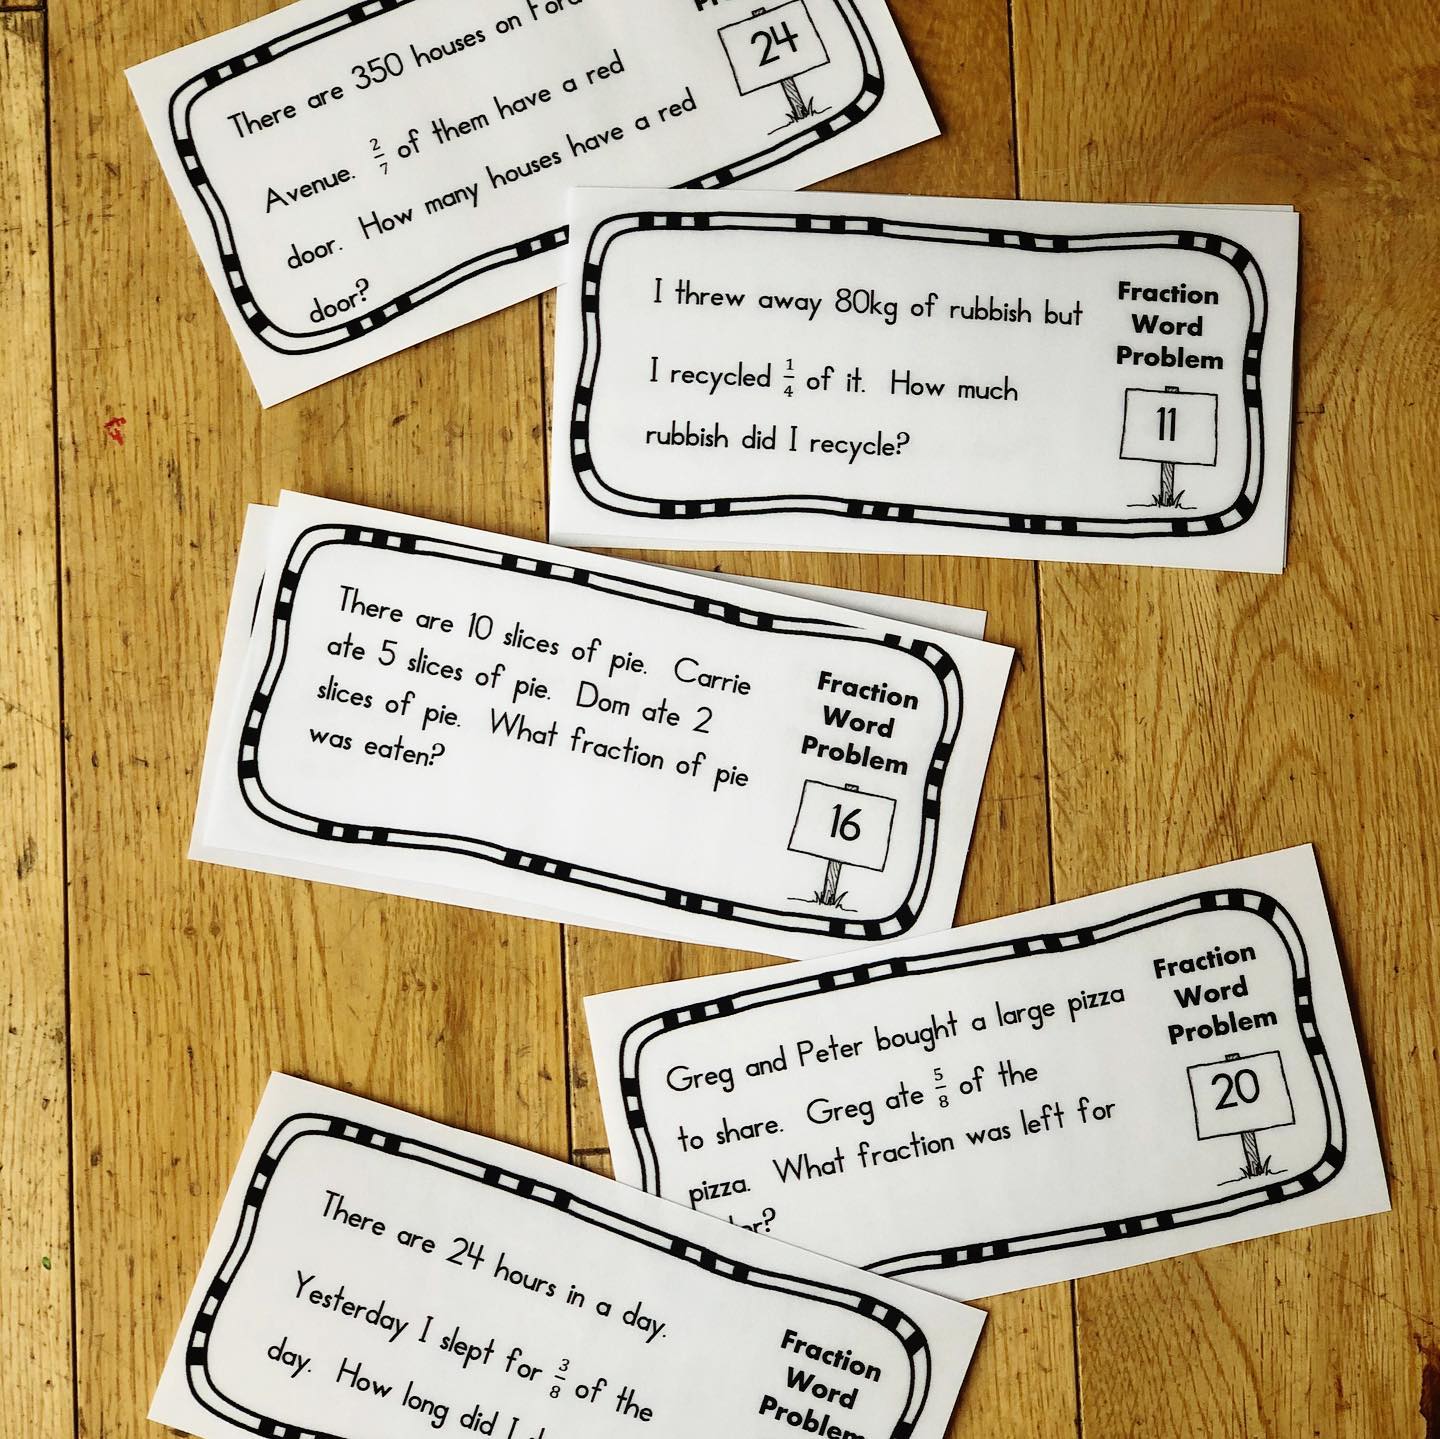 There are 350 houses on
Avenue. 2/7 of them have a red
door. How many houses have a red
door?
24
I threw away 80kg of rubbish but
I recycled 1/4 of it. How much
rubbish did I recycle?
Fraction
Word
Problem
11
There are 10 slices of pie. Carrie
ate 5 slices of pie. Dom ate 2
slices of pie. What fraction of pie
was eaten?
Fraction
Word
Problem
16
Greg and Peter bought a large pizza
to share. Greg ate 5/8 of the
pizza. What fraction was left for
Fraction
Word
Problem
20
There are 24 hours in a day.
Yesterday I slept for 3/8 of the
day. How long did I
Fraction
Word
Problem